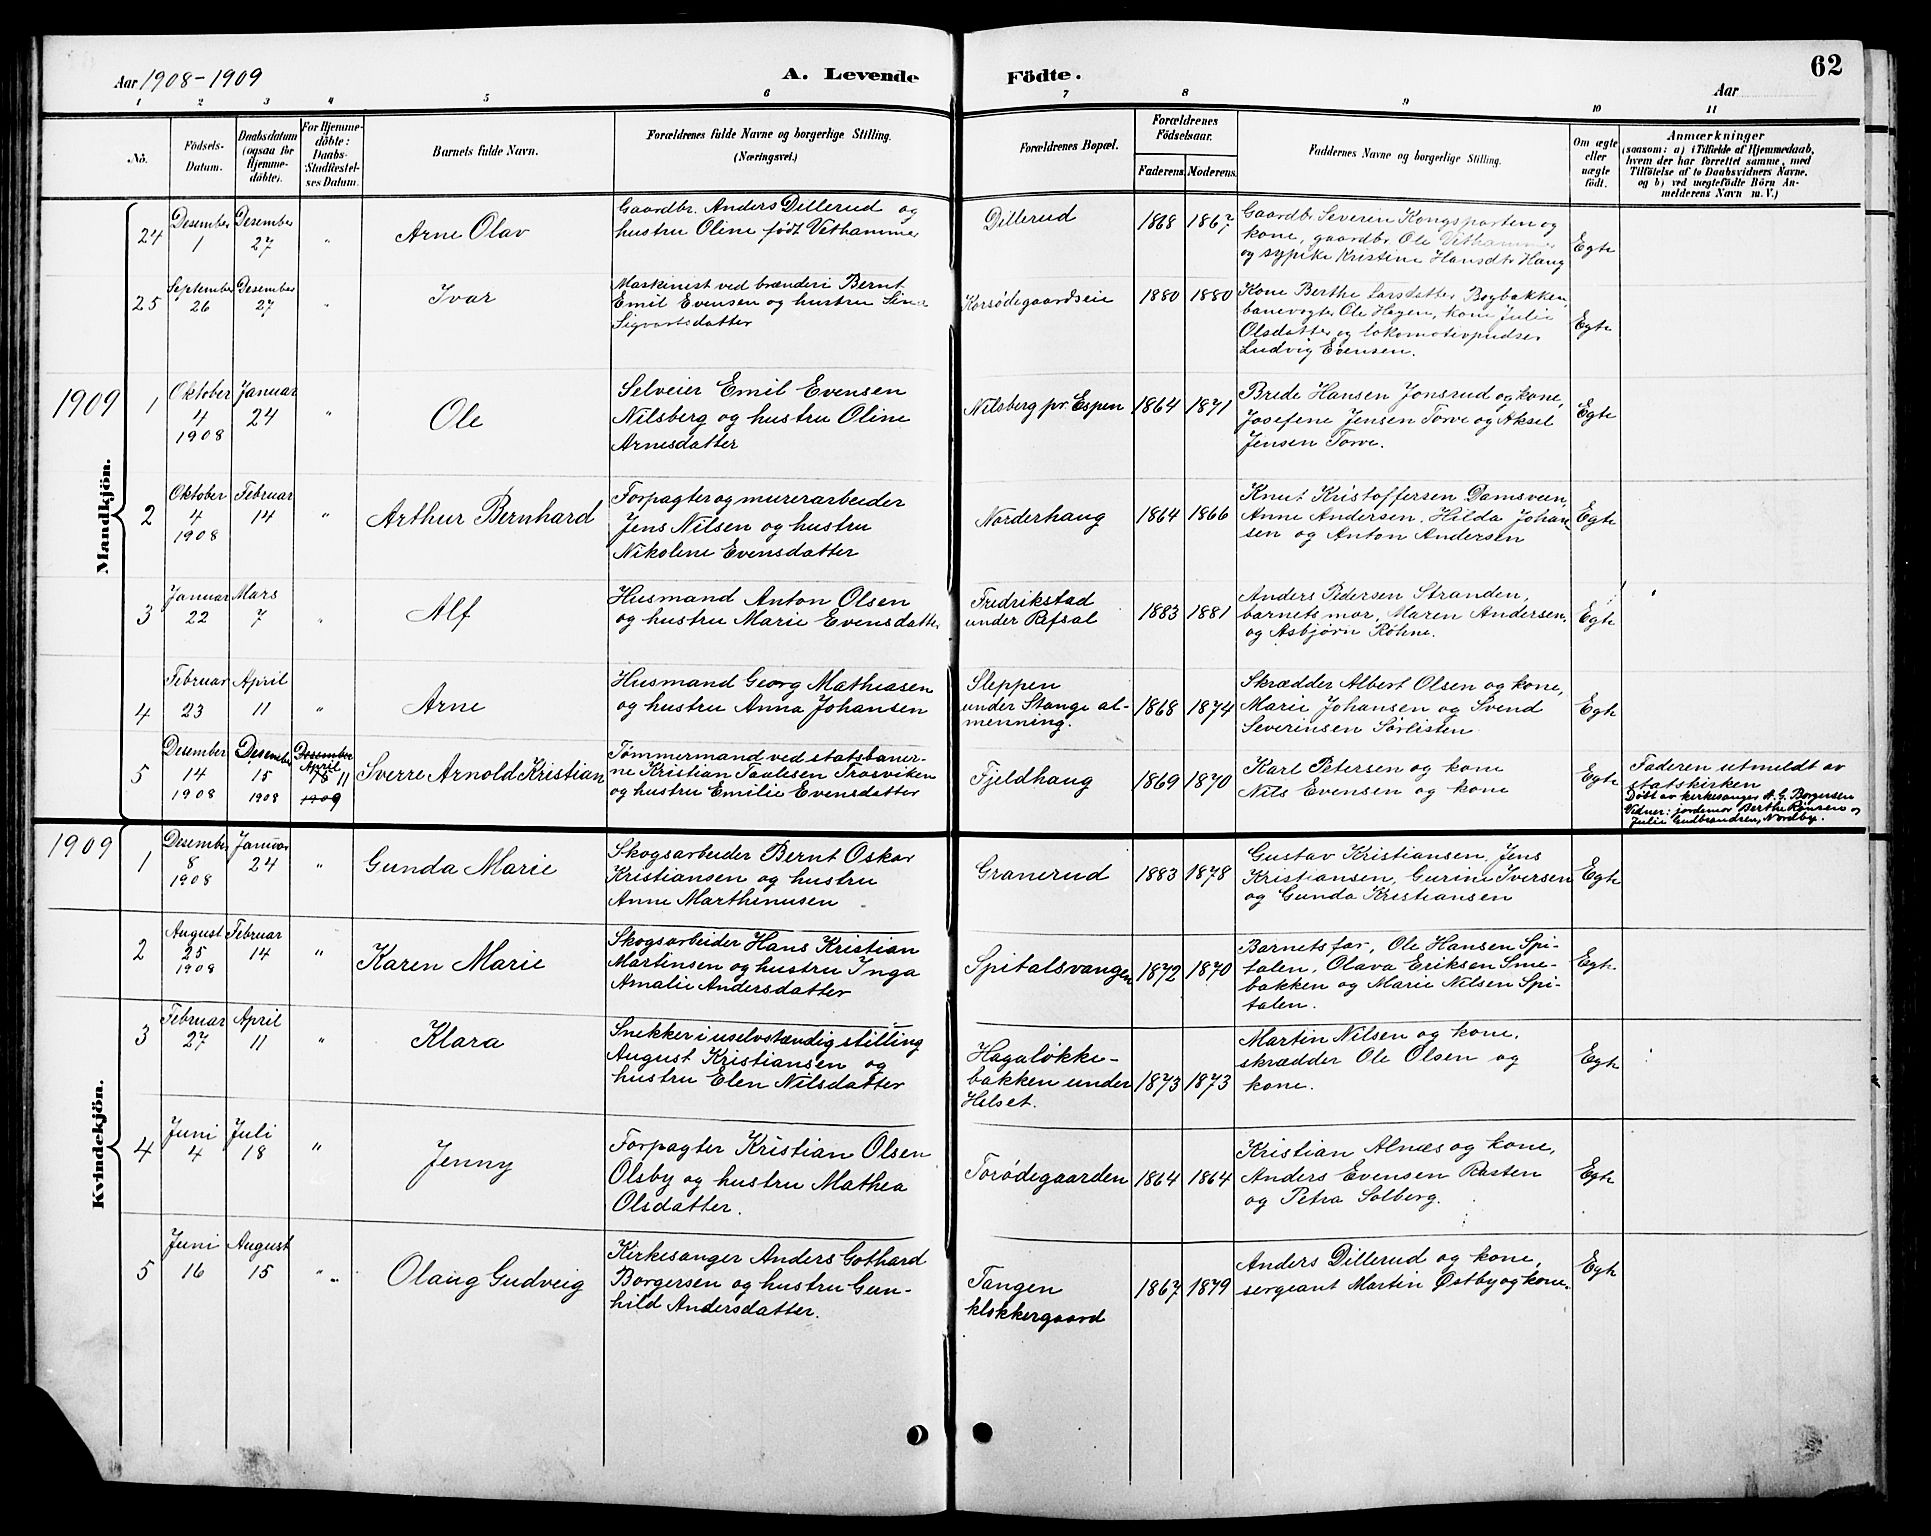 Aar 1908-1909
A. Levende
Födte.
Aar
62
1 2 3 4 5 6 7 8 9 10 11
No.
Födsels-
Datum.
Daabsdatum
(ogsaa for
Hjemme-
döbte).
For Hjemme-
döbte:
Daabs-
Stadfæstel-
ses Datum.
Barnets fulde Navn.
Forældrenes fulde Navne og borgerlige Stilling.
(Næringsvei.)
Forældrenes Bopæl.
Forældrenes
Födselsaar.
Faderens. Moderens.
Faddernes Navne og borgerlige Stilling.
Om ægte
eller
uægte
født.
Anmærkninger
(saasom: a) i Tilfælde af Hjemmedaab,
hvem der har forrettet samme, med
Tilføielse af to Daabsvidners Navne,
og b) ved uægtefödte Börn An-
melderens Navn m. V.)
Mandkjön.
24
Desember
1
Desember
27
"
Arne Olav
Gaardbr. Anders Dillerud og
hustru Oline født Vethammer
Dillerud
1868 1867
Gaardbr Severin Kongsparten og
kone, gaardbr Ole Vethammer
og sypike Kristine Hansdtr Haug
Egte
25
September
26
Desember
27
"
Ivar
Maskinist ved brænderi Bernt
Emil Evensen og hustru Sina
Sigvartsdatter
Korsødegaardseie
1880 1880
Kone Berthe Larsdatter Bogbakken,
banevogter Ole Hagen, kone Julie
Olsdatter og lokomotivpudser
Ludvig Evensen.
Egte
1909
1
Oktober
4
1908
Januar
24
"
Ole
Selveier Emil Evensen
Nilsberg og hustru Oline
Arnesdatter
Nilsberg pr. Espen
1864 1871
Brede Hansen Jonsrud og kone,
Josefine Jensen Torve og Aksel
Jensen Torve.
Egte
2
Oktober
4
1908
Februar
14
"
Arthur Bernhard
Forpagter og murerarbeider
Jens Nilsen og hustru
Nikoline Evensdatter
Norderhaug
1864 1866
Knut Kristoffersen Damsveen,
Anne Andersen, Hilda Johan
sen og Anton Andersen
Egte
3
Januar
22
Mars
7
"
Alf
Husmand Anton Olsen
og hustru Marie Evensdatter
Fredrikstad
under Refsal
1883 1881
Anders Pedersen Stranden,
barnets mor, Maren Andersen,
og Asbjørn Røhne.
Egte
4
Februar
23
April
11
"
Arne
Husmand Georg Mathiasen
og hustru Anna Johansen
Sleppen
under Stange al-
menning.
1868 1874
Skrædder Albert Olsen og kone,
Marie Johansen og Svend
Severinsen Sørlisten
Egte
5
Desember
14
1908
Desember
15
1908
Desember
April
15 11
1909
Sverre Arnold Kristian
Tømmermand ved statsbaner-
ne Kristian Paulesen Trosviken
og hustru Emilie Evensdatter
Fjeldhaug
1869 1870
Karl Petersen og kone
Nils Evensen og kone
Egte
Faderen utmeldt av
statskirken
Døbt av kirkesanger A. G. Borgersen
Vidner: jordemor Berthe Rønsen og
Julie Gudbrandsen, Nordby.
Kvindekjön.
1909
1
Desember
8
1908
Januar
24
"
Gunda Marie
Skogsarbeider Bernt Oskar
Kristiansen og hustru
Anne Marthinusen
Granerud
1883 1878
Gustav Kristiansen, Jens
Kristiansen, Gurine Iversen
og Gunda Kristiansen
Egte
2
August
25
1908
Februar
14
"
Karen Marie
Skogsarbeider Hans Kristian
Martinsen og hustru Inga
Amalie Andersdatter
Spitalsvangen
1872 1870
Barnets far, Ole Hansen Spi-
talen, Olava Eriksen Sme-
bakken og Marie Nilsen Spi-
talen.
Egte
3
Februar
27
April
11
"
Klara
Snekker i uselvstændig stilling
August Kristiansen og
hustru Elen Nilsdatter
Hagaløkke-
bakken under
Hilset.
1873 1873
Martin Nilsen og kone,
skrædder Ole Olsen og
kone.
Egte
4
Juni
4
Juli
18
"
Jenny
Forpagter Kristian Olsen
Olsby og hustru Mathea
Olsdatter.
Torødegaarden
1864 1864
Kristian Alnæs og kone,
Anders Evensen Rasten
og Petra Solberg.
Egte
5
Juni
16
August
15
"
Olaug Gudveig
Kirkesanger Anders Gothard
Borgersen og hustru Gun-
hild Andersdatter.
Tangen
klokkergaard
1867 1879
Anders Dillerud og kone,
sergeant Martin Østby og kone.
Egte